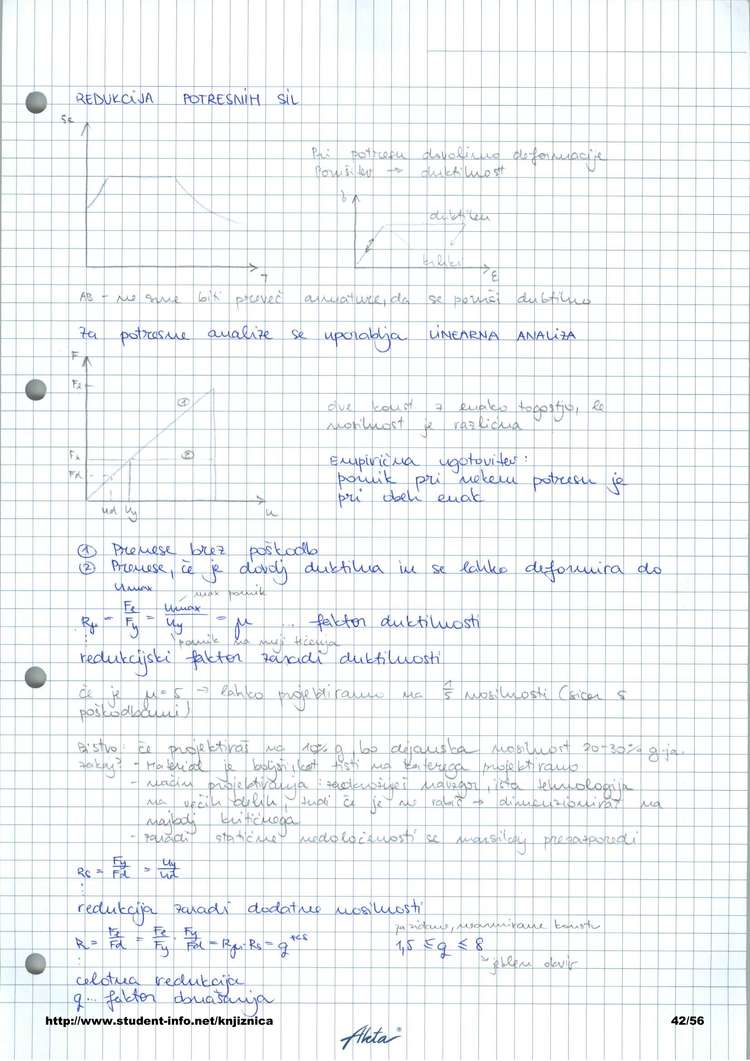 REDUKCIJA POTRESNIH SIL
Se
T
Pri potresu dovolimo deformacije
Porušitev → duktilnost
duktilen
krhki
ε
AB - ne sme biti preveč armature, da se poruši duktilno
Za potresne analize se uporablja LINEARNA ANALIZA
F
Fe
①
②
Fy
Fd
ud uy u
dve konst z enako togostjo, le
nosilnost je različna
Empirična ugotovitev:
pomik pri nekem potresu je
pri obeh enak
① Prenese brez poškodb
② Prenese, če je dovolj duktilna in se lahko deformira do
umax
max pomik
Rμ = Fe/Fy = umax/uy = μ ... faktor duktilnosti
pomik na meji tečenja
redukcijski faktor zaradi duktilnosti
če je μ=5 → lahko projektiramo na 1/5 nosilnosti (sicer s
poškodbami)
Bistvo: če projektiraš na 10% g, bo dejanska nosilnost 20-30% g-ja.
zakaj? - Material je boljši, kot tisti na katerega projektiramo
- način projektiranja: zaokrožuješ navzgor, ista tehnologija
na večih delih, tudi če je ne rabiš → dimenzioniraš na
najbolj kritičnega
- zaradi statične nedoločenosti se prerazporedi
Rs = Fy/Fd = uy/ud
redukcija zaradi dodatne nosilnosti
R = Fe/Fd = Fe/Fy · Fy/Fd = Rμ · Rs = q
EC8
za zidane, nearmirane konst.
1,5 ≤ q ≤ 8
jeklen okvir
celotna redukcija
q... faktor obnašanja
http://www.student-info.net/knjiznica
42/56
Akta